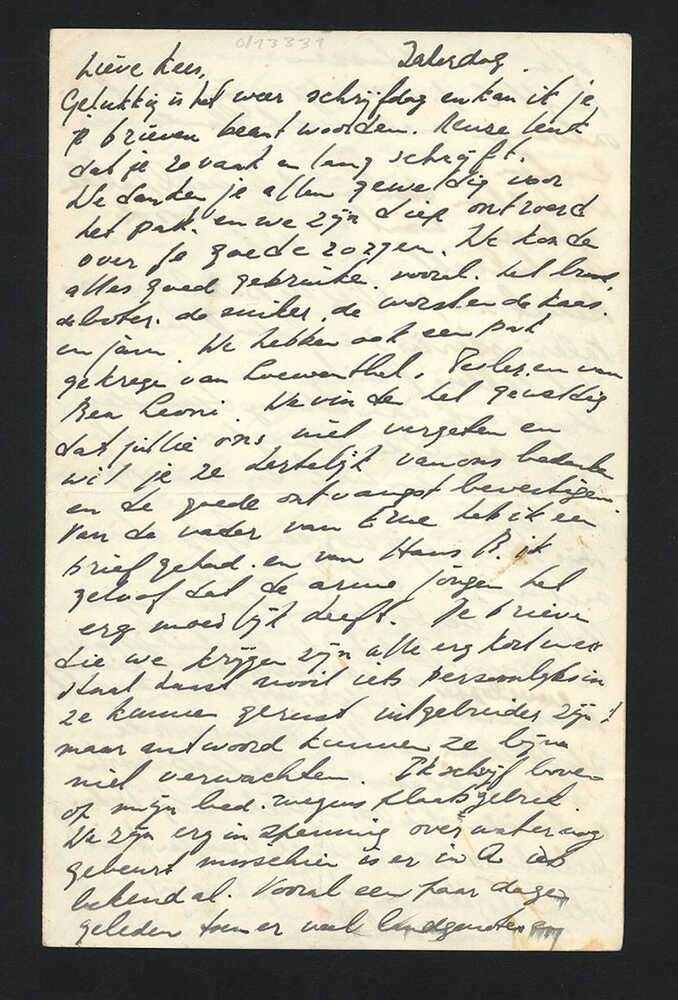 0/13331
Zaterdag
Lieve Kees,
Gelukkig is het weer schrijfdag en kan ik je
je brieven beantwoorden. Reuze leuk
dat je zo vaak en lang schrijft.
We danken je allen geweldig voor
het pak. en we zijn diep ontroerd
over je goede zorgen. We konde
alles goed gebruike. vooral. het brood,
de boter. de suiker. de worst en de kaas.
en jam. We hebben ook een pak
gekrege van Loewenthel. en van
Bea Leoni. We vinden het geweldig
dat jullie ons niet vergeten en
wil je ze hertelijk van ons bedanke
en de goede ontvangst bevestigen.
Van de vader van heb ik een
brief gehad. en van Hans B. ik
geloof dat de arme jongen het
erg moeilijk heeft. De brieve
die we krijgen zijn alle erg kort we
staat haast nooit iets persoonlijks in
ze kunnen gerust uitgebreider zijn!
maar antwoord kunnen ze bijna
niet verwachten. Ik schrijf boven
op mijn bed. wegens plaatsgebrek.
We zijn erg in spanning over wat er nog
gebeurt misschien is er in A iets
bekend al. Vooral een paar dagen
geleden toen er veel landgenoten